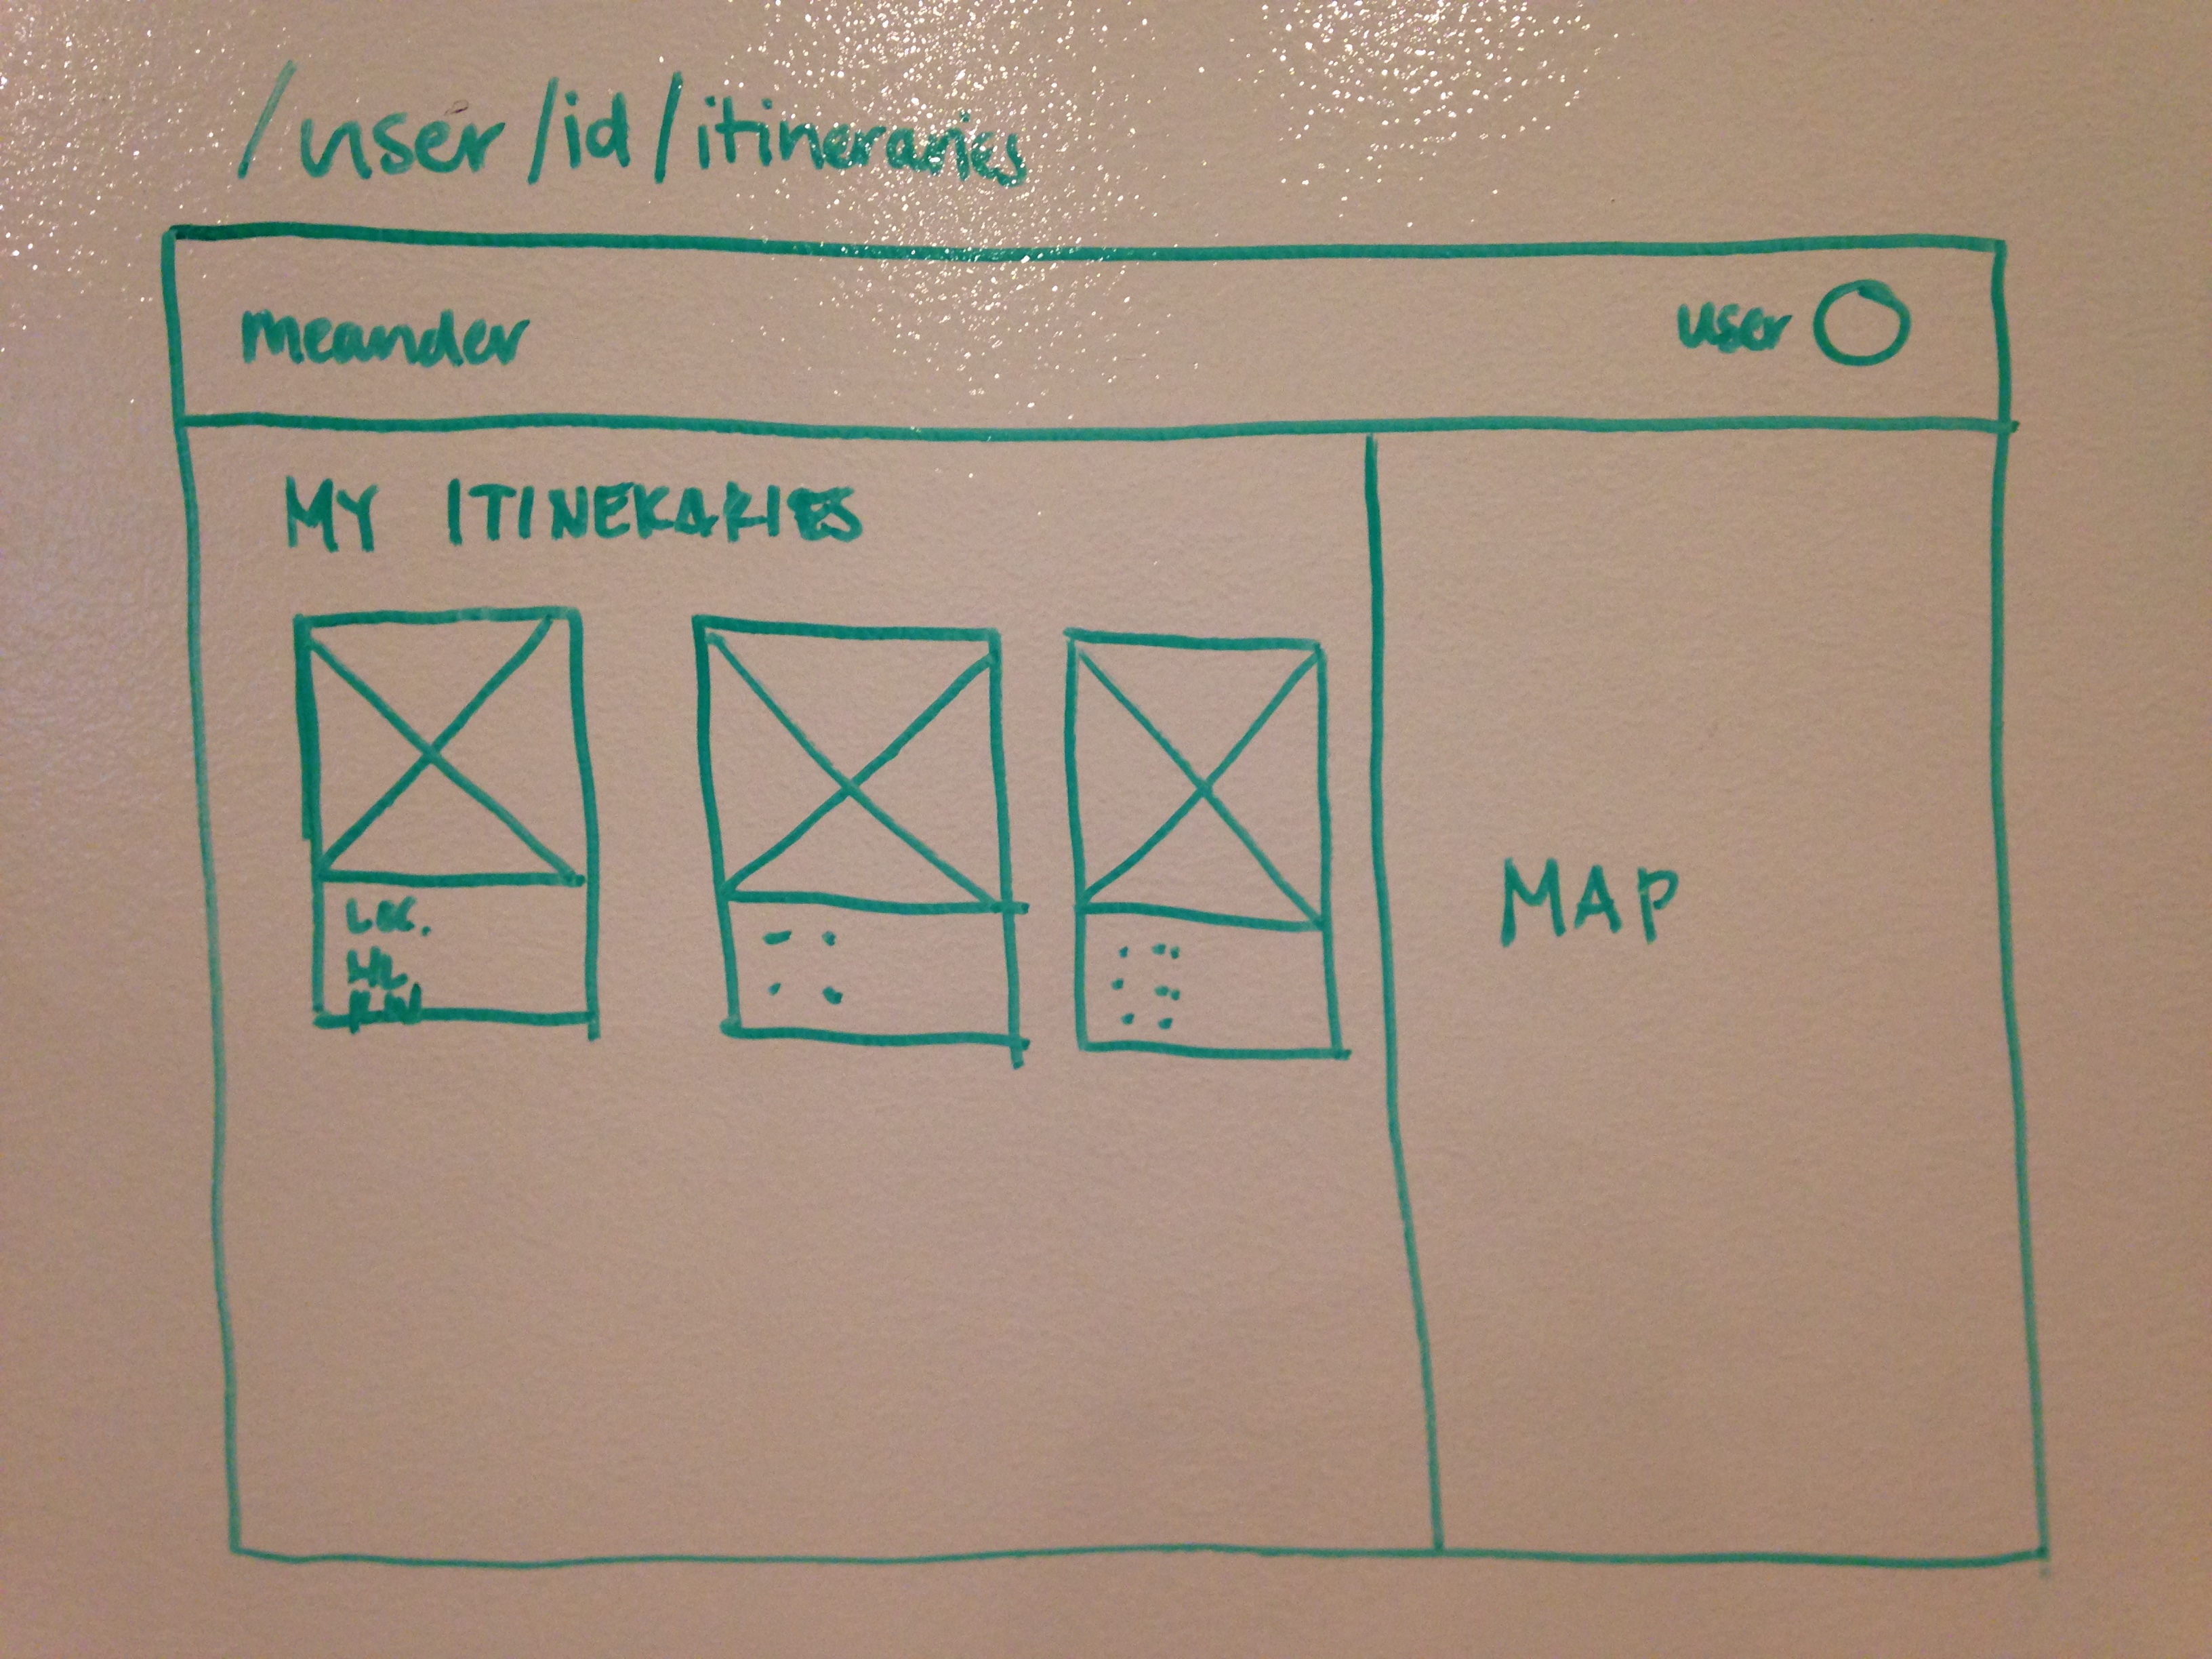 /user/id/itineraries
meander
user
MY ITINERARIES
Loc.
MAP